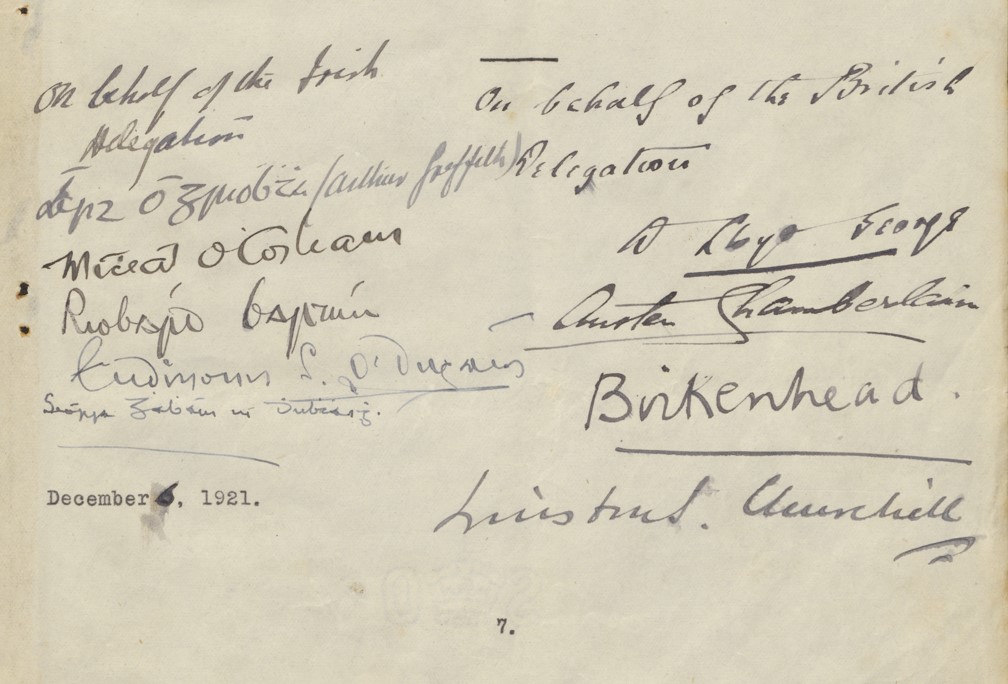 On behalf of the Irish
Delegation
Art Ó Gríobhtha (Arthur Griffith)
Micheál Ó Coileain
Riobárd Bartún
Eudhmonn S. Ó Dugáin
Seórsa Ghabháin uí Dhubhthaigh.
December 6, 1921.
On behalf of the British
Delegation
D Lloyd George
Austen Chamberlain
Birkenhead.
Winston S. Churchill
7.